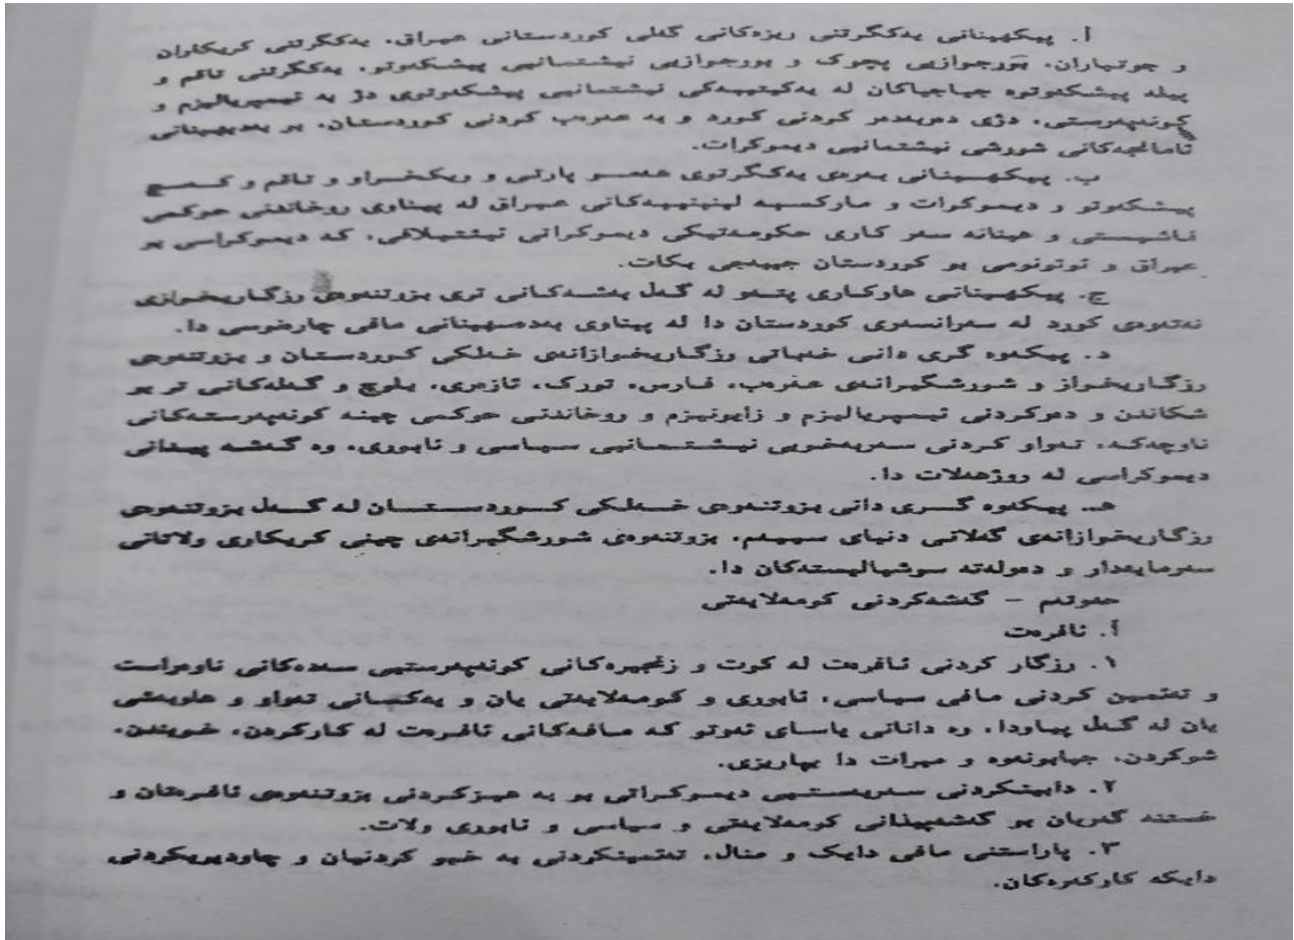 أ. پیکهینانی یەکگرتنی ریزەکانی گەلی کوردستانی عیراق، یەکگرتنی کریکاران
و جوتیاران، بورجوازیی بچوک و بورجوازیی نیشتمانیی پیشکەوتو، یەکگرتنی تاقم و
پیله پیشکەوتوه جیاجیاکان له یەکیتییەکی نیشتمانیی پیشکەوتوی دژ به ئیمپریالیزم و
کونەپەرستی، دژی دەربەدەر کردنی کورد و به عەرەب کردنی کوردستان، بو بەدیهینانی
ئامانجەکانی شورشی نیشتمانیی دیموکرات.
ب. پیکهینانی بەرەی یەکگرتوی هەمو پارتی و ریکخراو و تاقم و کەسچ
پیشکەوتو و دیموکرات و مارکسیه لینینییەکانی عیراق له پیناوی روخاندنی حوکمی
فاشیستی و هینانه سەر کاری حکومەتیکی دیموکراتی ئیئتیلافی، که دیموکراسی بو
عیراق و ئوتونومی بو کوردستان جیبەجی بکات.
ج. پیکهینانی هاوکاری پتەو له گەل بەشەکانی تری بزوتنەوەی رزگاریخوازی
نەتەوەی کورد له سەرانسەری کوردستان دا له پیناوی بەدەسهینانی مافی چارەنوسی دا.
د. پیکەوه گری دانی خەباتی رزگاریخوازانەی خەلکی کوردستان و بزوتنەوەی
رزگاریخواز و شورشگیرانەی عەرەب، فارس، تورک، ئازەری، بلوچ و گەلەکانی تر بو
شکاندن و دەرکردنی ئیمپریالیزم و زایونیزم و روخاندنی حوکمی چینه کونەپەرستەکانی
ناوچەکه، تەواو کردنی سەربەخویی نیشتمانیی سیاسی و ئابوری، وه گەشه پیدانی
دیموکراسی له روژهەلات دا.
هـ. پیکەوه گری دانی بزوتنەوەی خەلکی کوردستان له گەل بزوتنەوەی
رزگاریخوازانەی گەلانی دنیای سییەم، بزوتنەوەی شورشگیرانەی چینی کریکاری ولاتانی
سەرمایەدار و دەولەته سوشیالیستەکان دا.
حەوتەم – گەشەکردنی کومەلایەتی
أ. ئافرەت
١. رزگار کردنی ئافرەت له کوت و زنجیرەکانی کونەپەرستیی سەدەکانی ناوەراست
و تەئمین کردنی مافی سیاسی، ئابوری و کومەلایەتی یان و یەکسانی تەواو و هاوبەشی
یان له گەل پیاودا، وه دانانی یاسای ئەوتو که مافەکانی ئافرەت له کارکردن، خویندن،
شوکردن، جیابونەوه و میرات دا بپاریزی.
٢. دابینکردنی سەربەستیی دیموکراتی بو به هیزکردنی بزوتنەوەی ئافرەتان و
خستنه گەریان بو گەشەپیدانی کومەلایەتی و سیاسی و ئابوری ولات.
٣. پاراستنی مافی دایک و منال، تەئمینکردنی به خیو کردنیان و چاودیریکردنی
دایکه کارکەرەکان.